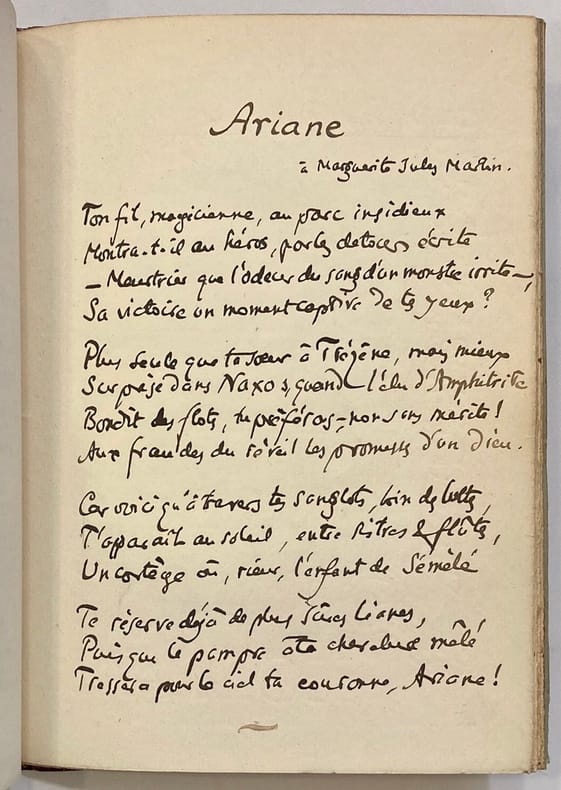 Ariane
à Marguerite Jules Martin.
Ton fil, magicienne, au parc insidieux
Montra-t-il au héros, par tes détours écrite
— Meurtrier que l'odeur du sang d'un monstre irrite —,
Sa victoire un moment captive de tes yeux ?
Plus seule que ta sœur à Trézène, mais mieux
Surprise dans Naxos, quand l'élu d'Amphitrite
Bondit des flots, tu préféras, non sans mérite !
Aux fraudes du réveil les promesses d'un Dieu.
Car voici qu'à travers tes sanglots, loin des luttes,
T'apparaît au soleil, entre sistres & flûtes,
Un cortège où, rieur, l'enfant de Sémélé
Te réserve déjà de plus sûres lianes,
Puisque le pampre à ta chevelure mêlé
Tressera pour le ciel ta couronne, Ariane !